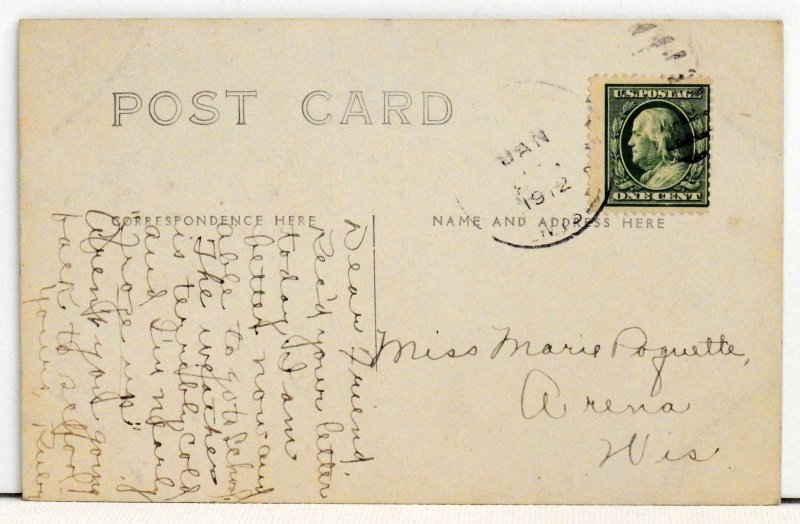 POST CARD
U.S. POSTAGE
ONE CENT
JAN
1912
CORRESPONDENCE HERE
NAME AND ADDRESS HERE
Dear Friend,
Rec'd your letter
today. I am
better now and
able to go to school.
The weather
is terribly cold
and I'm nearly
"froze up"
Aren't you going
back to school?
Yours, Ruby
Miss Marie Poquette,
Arena
Wis